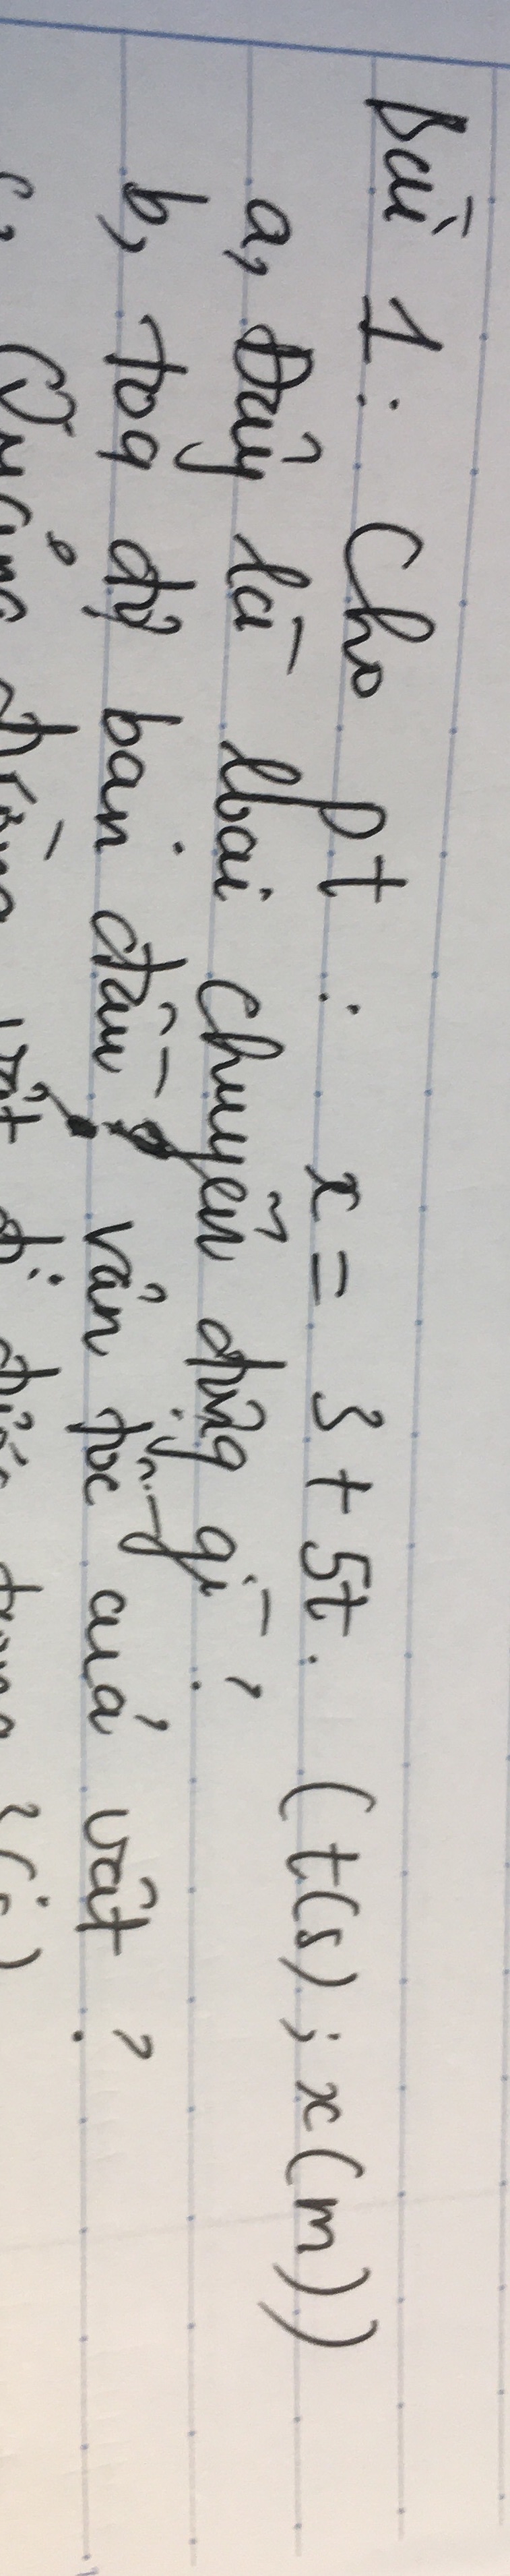 Bài 1: Cho pt: x = 3 + 5t. (t(s); x(m))
a, Đây là loại chuyển động gì?
b, toạ độ ban đầu, vận tốc của vật?
c, Quãng đường vật đi được trong 2(s)